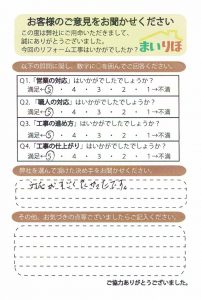 お客様のご意見をお聞かせください
この度は弊社にご用命いただきまして、
誠にありがとうございました。
今回のリフォーム工事はいかがでしたか？
まいりほ
以下の質問に関し、数字に○を囲んでご回答ください。
Q1.「営業の対応」はいかがでしたでしょうか？
満足←⑤・4・3・2・1→不満
Q2.「職人の対応」はいかがでしたでしょうか？
満足←⑤・4・3・2・1→不満
Q3.「工事の進め方」はいかがでしたでしょうか？
満足←⑤・4・3・2・1→不満
Q4.「工事の仕上がり」はいかがでしたでしょうか？
満足←⑤・4・3・2・1→不満
弊社を選んで頂けた決め手をお聞かせください
その他、お気づきの点等ございましたらご記入ください。
ご協力ありがとうございました。